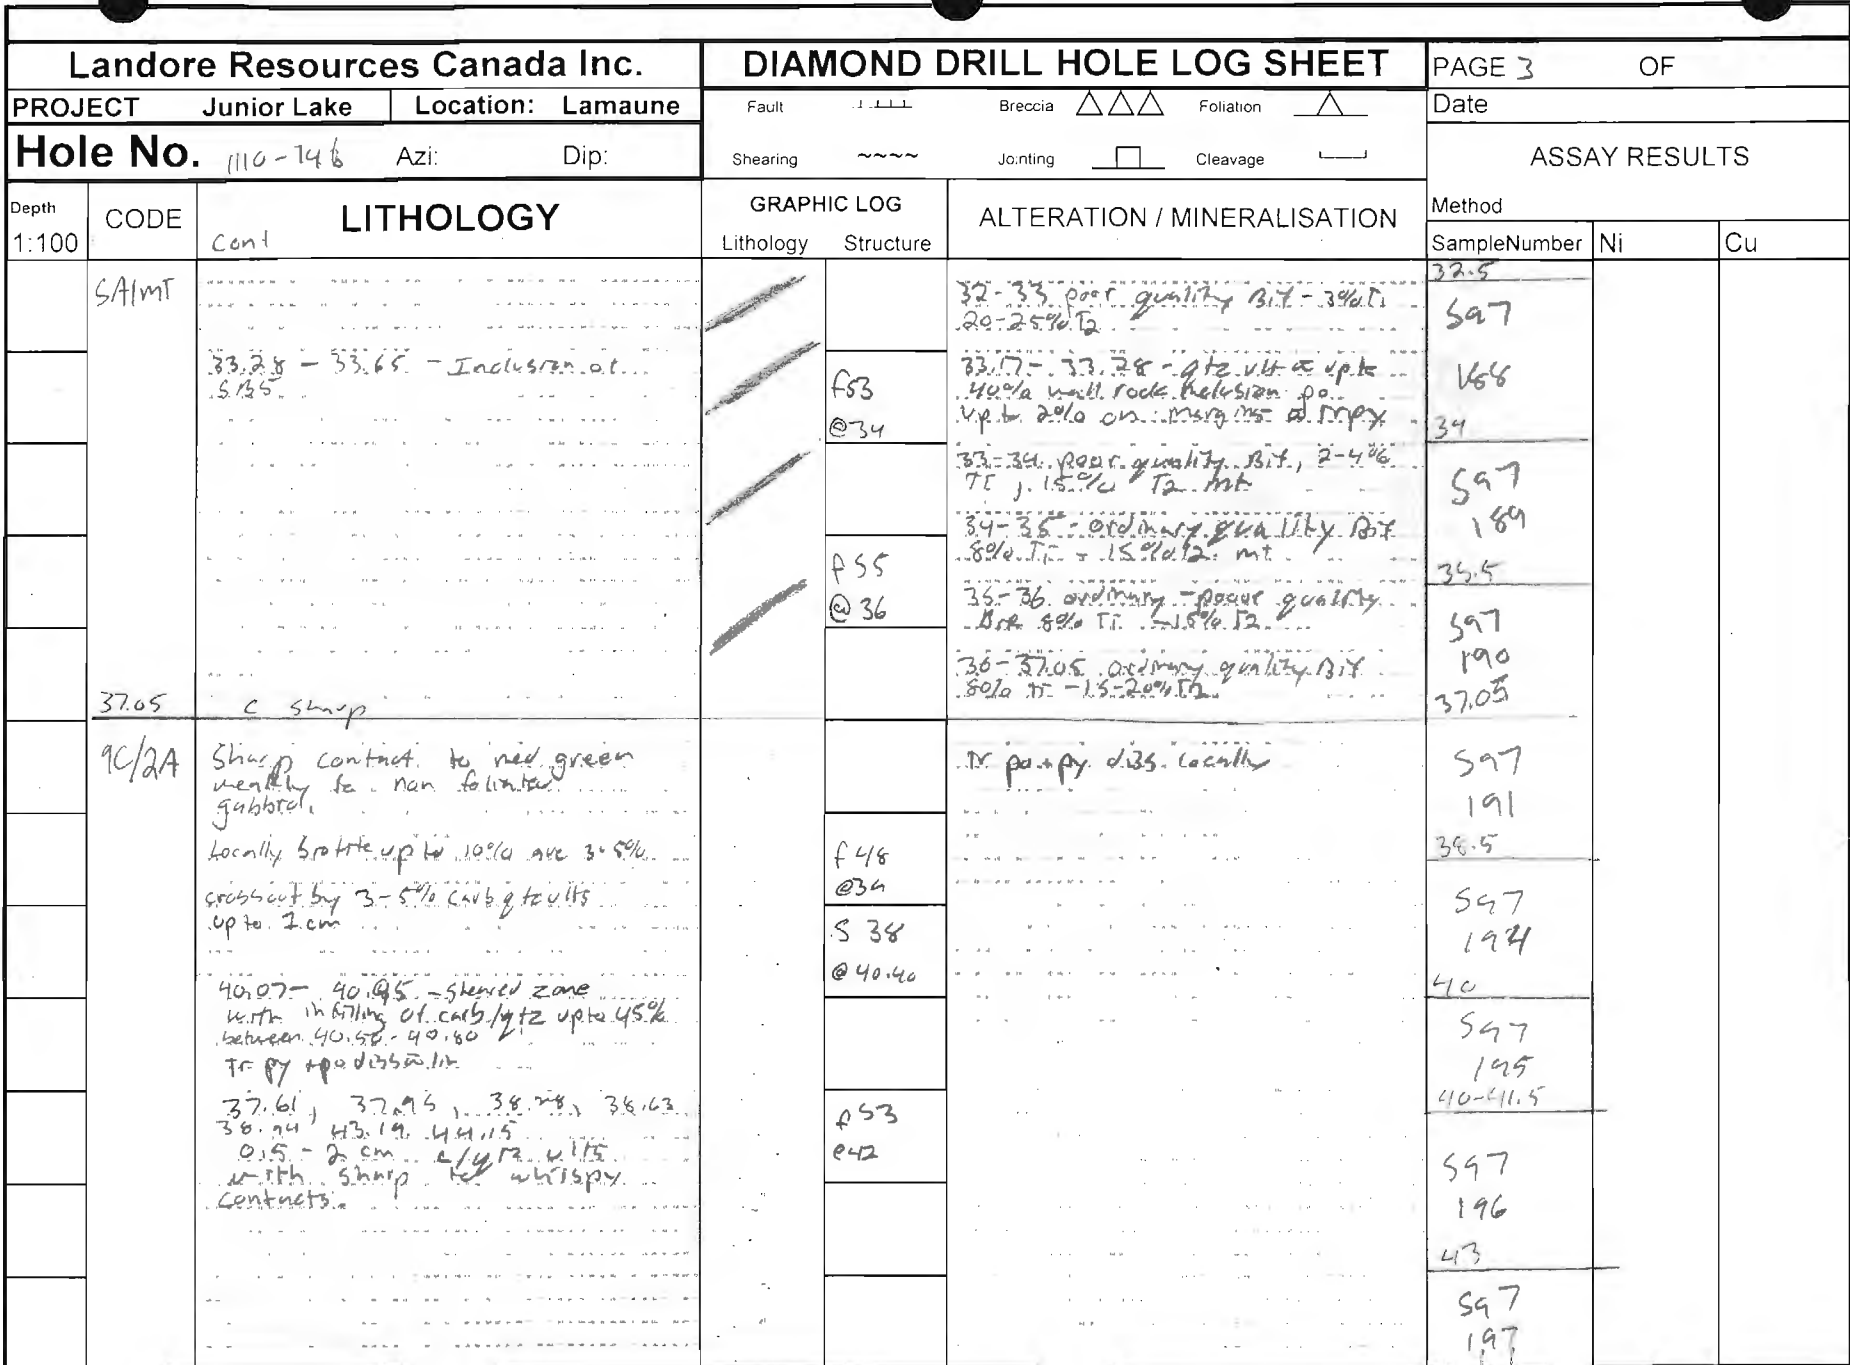 Landore Resources Canada Inc.
DIAMOND DRILL HOLE LOG SHEET
PAGE 3 OF
PROJECT Junior Lake Location: Lamaune
Fault Breccia Foliation
Date
Hole No. 1110-746 Azi: Dip:
Shearing Jointing Cleavage
ASSAY RESULTS
Depth 1:100
CODE
LITHOLOGY
Cont
GRAPHIC LOG
Lithology Structure
ALTERATION / MINERALISATION
Method
SampleNumber Ni Cu
5A/mT
33.28 - 33.65 - Inclusion of
37.05 C sharp
9C/2A
Sharp contact to med green
non
gabbro.
Locally biotite up to 10% ave 3-5%
crosscut by 3-5% carb qtz vlts
up to 1 cm
40.07-
-sheared zone
with infilling of carb/qtz upto 45%
between 40.50-40.80
Tr py +po
37.61, 38.63
43.19 44.15
0.5-2 cm c/qtz vlts
with sharp to whispy
contacts.
f53
@34
f55
@36
f48
S 38
@40.40
f53
@42
32-33 poor quality Bif - 3% T1
20-25% T2
33.17-33.28 - qtz vlt upto
40% wall rock inclusion po
up to 2% on margins
33-34 poor quality Bif, 2-4%
T1, 15% T2 mt
34-35 - ordinary quality Bif
8% T1 - 15% T2 mt
35-36 ordinary - poor quality
8% T1 - 15% T2
36-37.05 ordinary quality Bif
8% T1 - 15-20% T2
Tr po+py diss locally
32.5
597
188
34
597
189
35.5
597
190
37.05
597
191
38.5
597
194
40
597
195
40-41.5
597
196
43
597
197